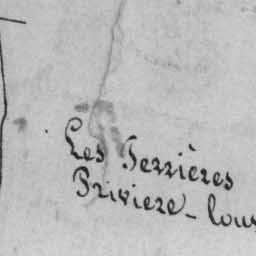 Les Perrières
Priviere - lous